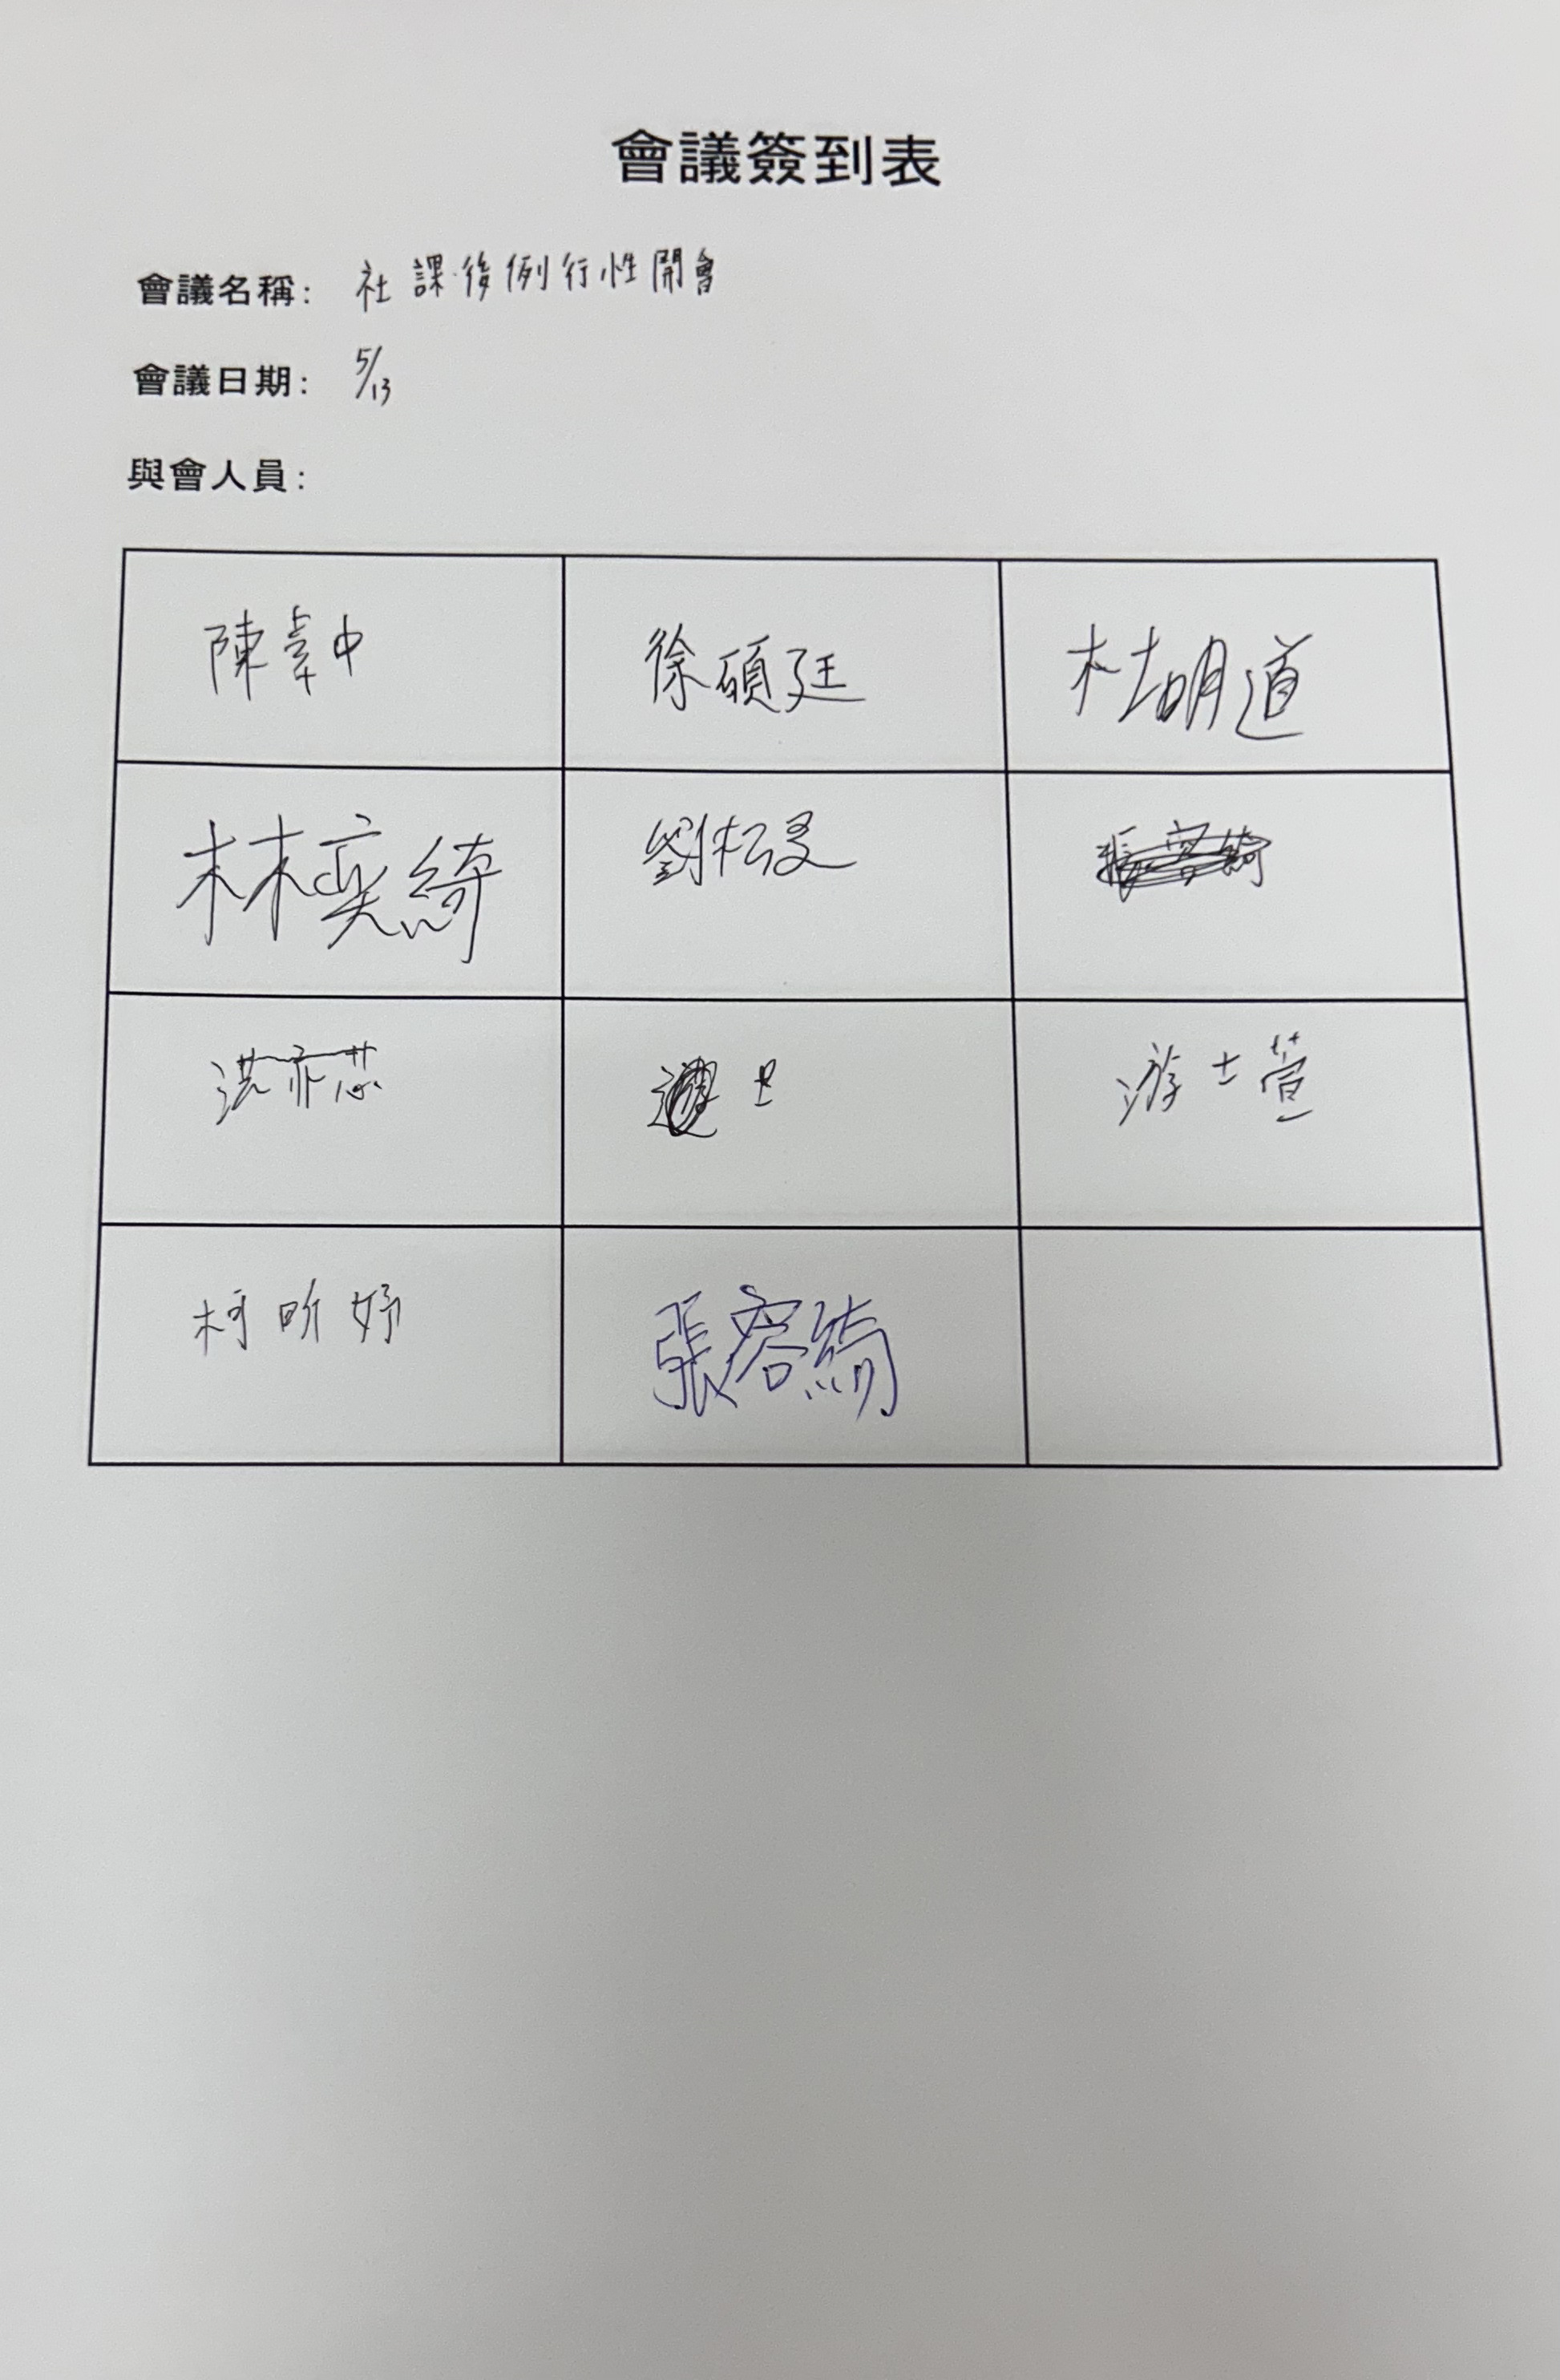 會議簽到表
會議名稱: 社課後例行性開會
會議日期: 5/13
與會人員:
陳韋中 徐碩廷 杜明道
林奕綺 劉松旻
洪亦芯 游士萱
柯昕妤 張容綺